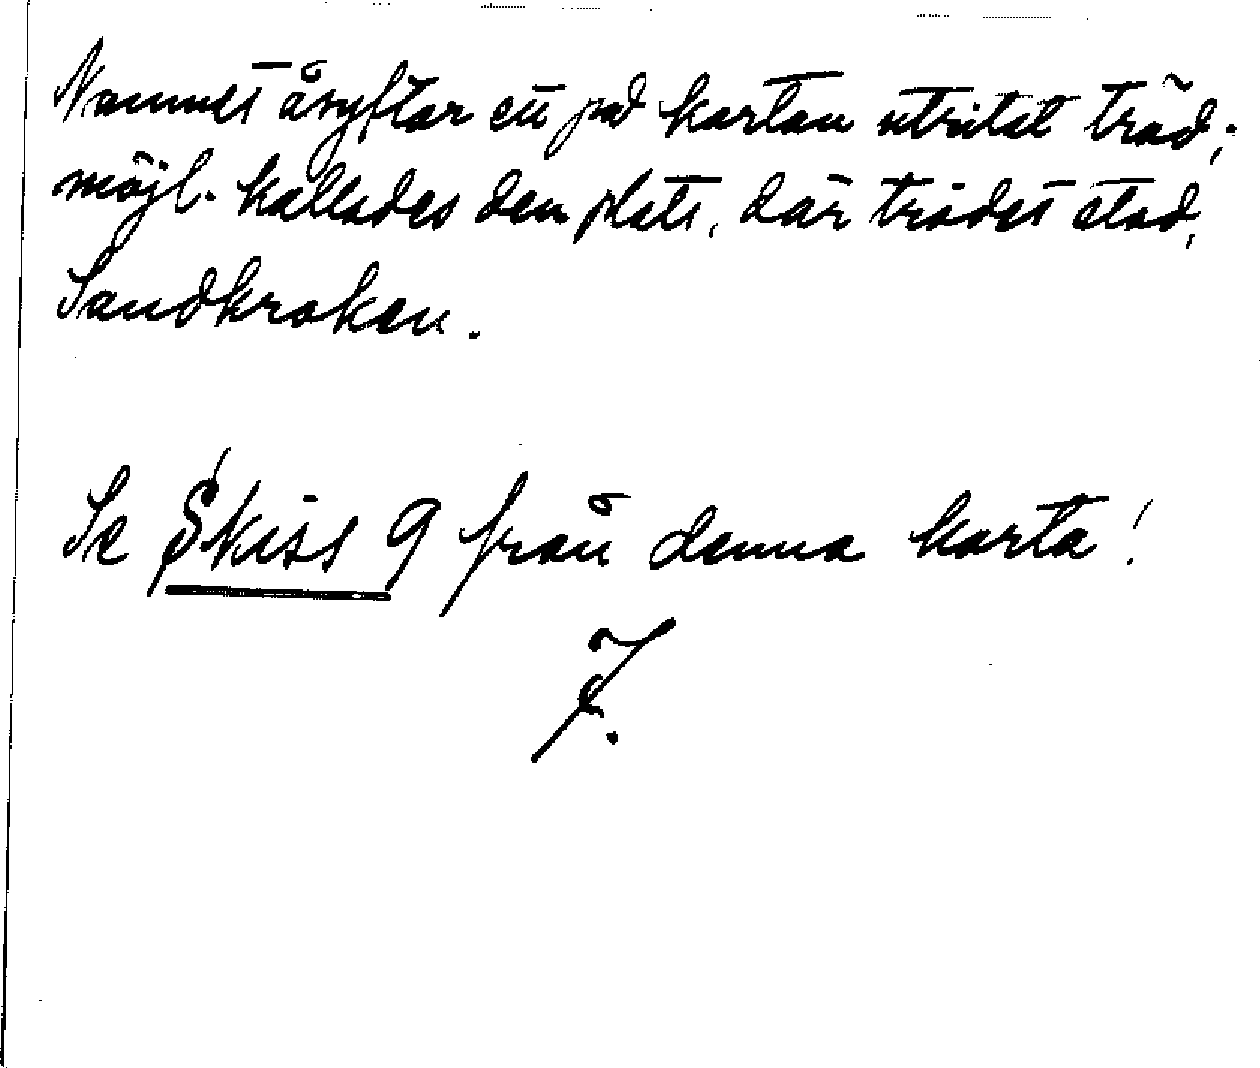 Namnet åsyftar ett på kartan utritat träd;
möjl. kallades den plats, där trädet stod,
Sandkroken.
Se Skiss 9 från denna karta!
F.